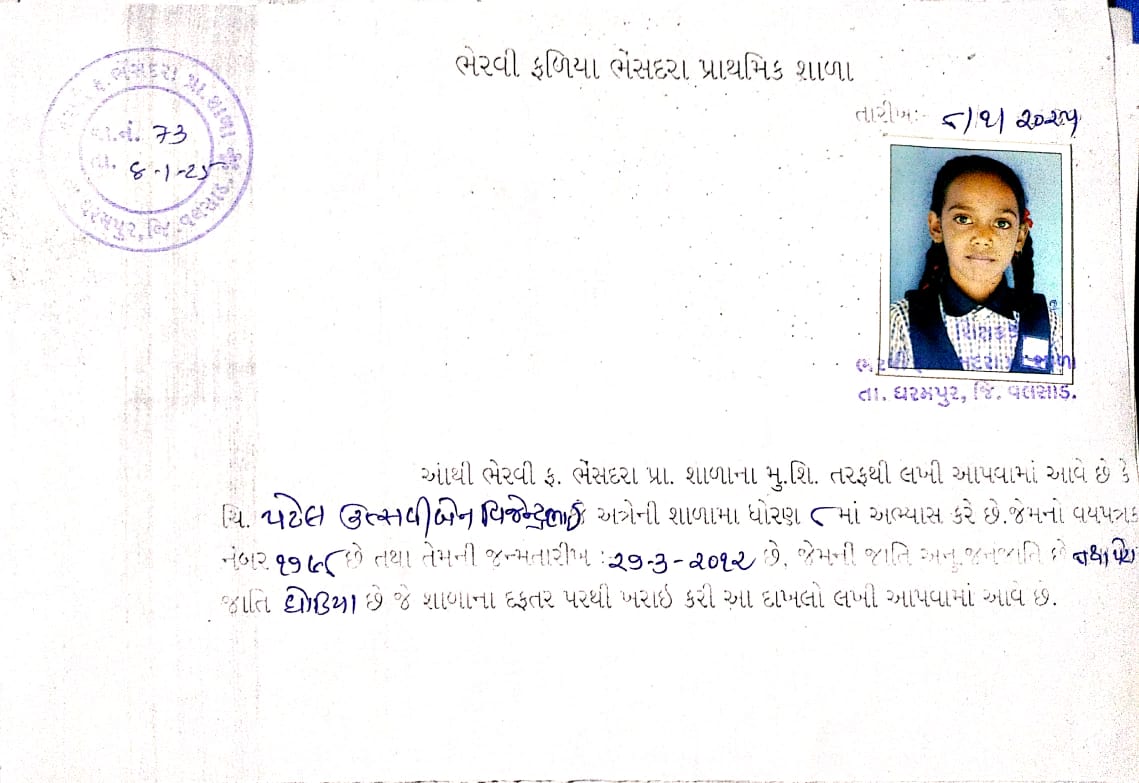 ભેરવી ફળિયા ભેંસદરા પ્રાથમિક શાળા
તારીખઃ- ૮/૧/૨૦૨૫
ફ. ભેંસદરા પ્રા. શાળા
જા.નં. 73
તા. 8-1-25
ધરમપુર, જિ. વલસાડ.
તા. ધરમપુર, જિ. વલસાડ.
આથી ભેરવી ફ. ભેંસદરા પ્રા. શાળાના મુ.શિ. તરફથી લખી આપવામાં આવે છે કે
ચિ. પટેલ ઉત્સવીબેન વિજેન્દ્રભાઈ અત્રેની શાળામા ધોરણ ૮ માં અભ્યાસ કરે છે.જેમનો વયપત્રક
નંબર ૧૧૫૮ છે તથા તેમની જન્મતારીખ :૨૭-૩-૨૦૧૨ છે. જેમની જાતિ અનુ.જનજાતિ છે તથા પેટા
જાતિ ધોડિયા છે જે શાળાના દફતર પરથી ખરાઇ કરી આ દાખલો લખી આપવામાં આવે છે.